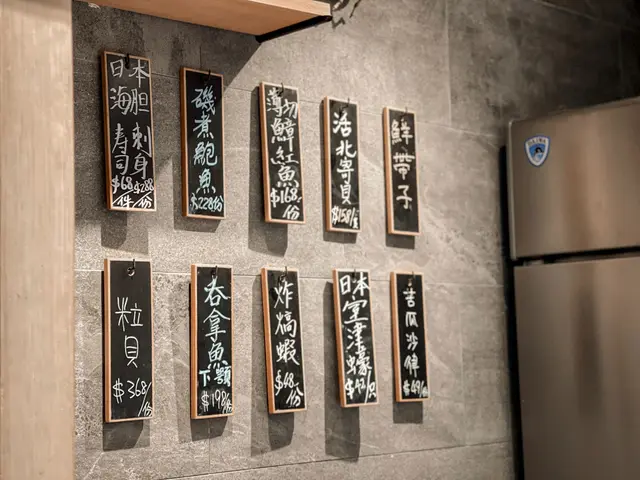 日本
海胆
寿司 刺身
$68 $288
/件 /份
磯煮鮑魚
$228/份
薄切鱆紅魚
$168/份
活北寄貝
$158/隻
鮮帶子
粒貝
$368/份
吞拿魚下顎
$198/份
炸㷛蝦
$48/份
日本室津蠔
$42/只
苦瓜沙律
$49/份